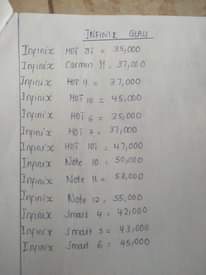 INFINIX GLASS
Infinix HOT 9i = 35,000
Infinix Common 11 = 37,000
Infinix HOT 9 = 37,000
Infinix HOT 10 = 45,000
Infinix HOT 6 = 35,000
Infinix HOT 7 = 37,000
Infinix HOT 10i = 47,000
Infinix Note 10 = 50,000
Infinix Note 11 = 53,000
Infinix Note 12 = 55,000
Infinix Smart 4 = 42,000
Infinix Smart 5 = 43,000
Infinix Smart 6 = 45,000